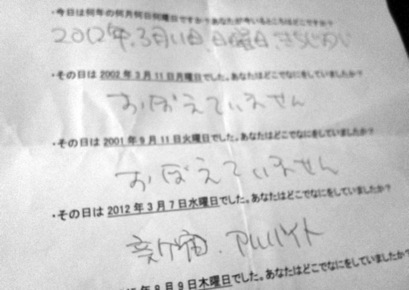 ・今日は何年の何月何日何曜日ですか？あなたが今いるところはどこですか？
2012年.3月11日.日曜日.
・その日は 2002年3月11日月曜日でした。あなたはどこでなにをしていましたか？
おぼえていません
・その日は 2001年9月11日火曜日でした。あなたはどこでなにをしていましたか？
おぼえていません
・その日は 2012年3月7日水曜日でした。あなたはどこでなにをしていましたか？
アルバイト
年8月9日木曜日でした。あなたはどこでなにをしていましたか？